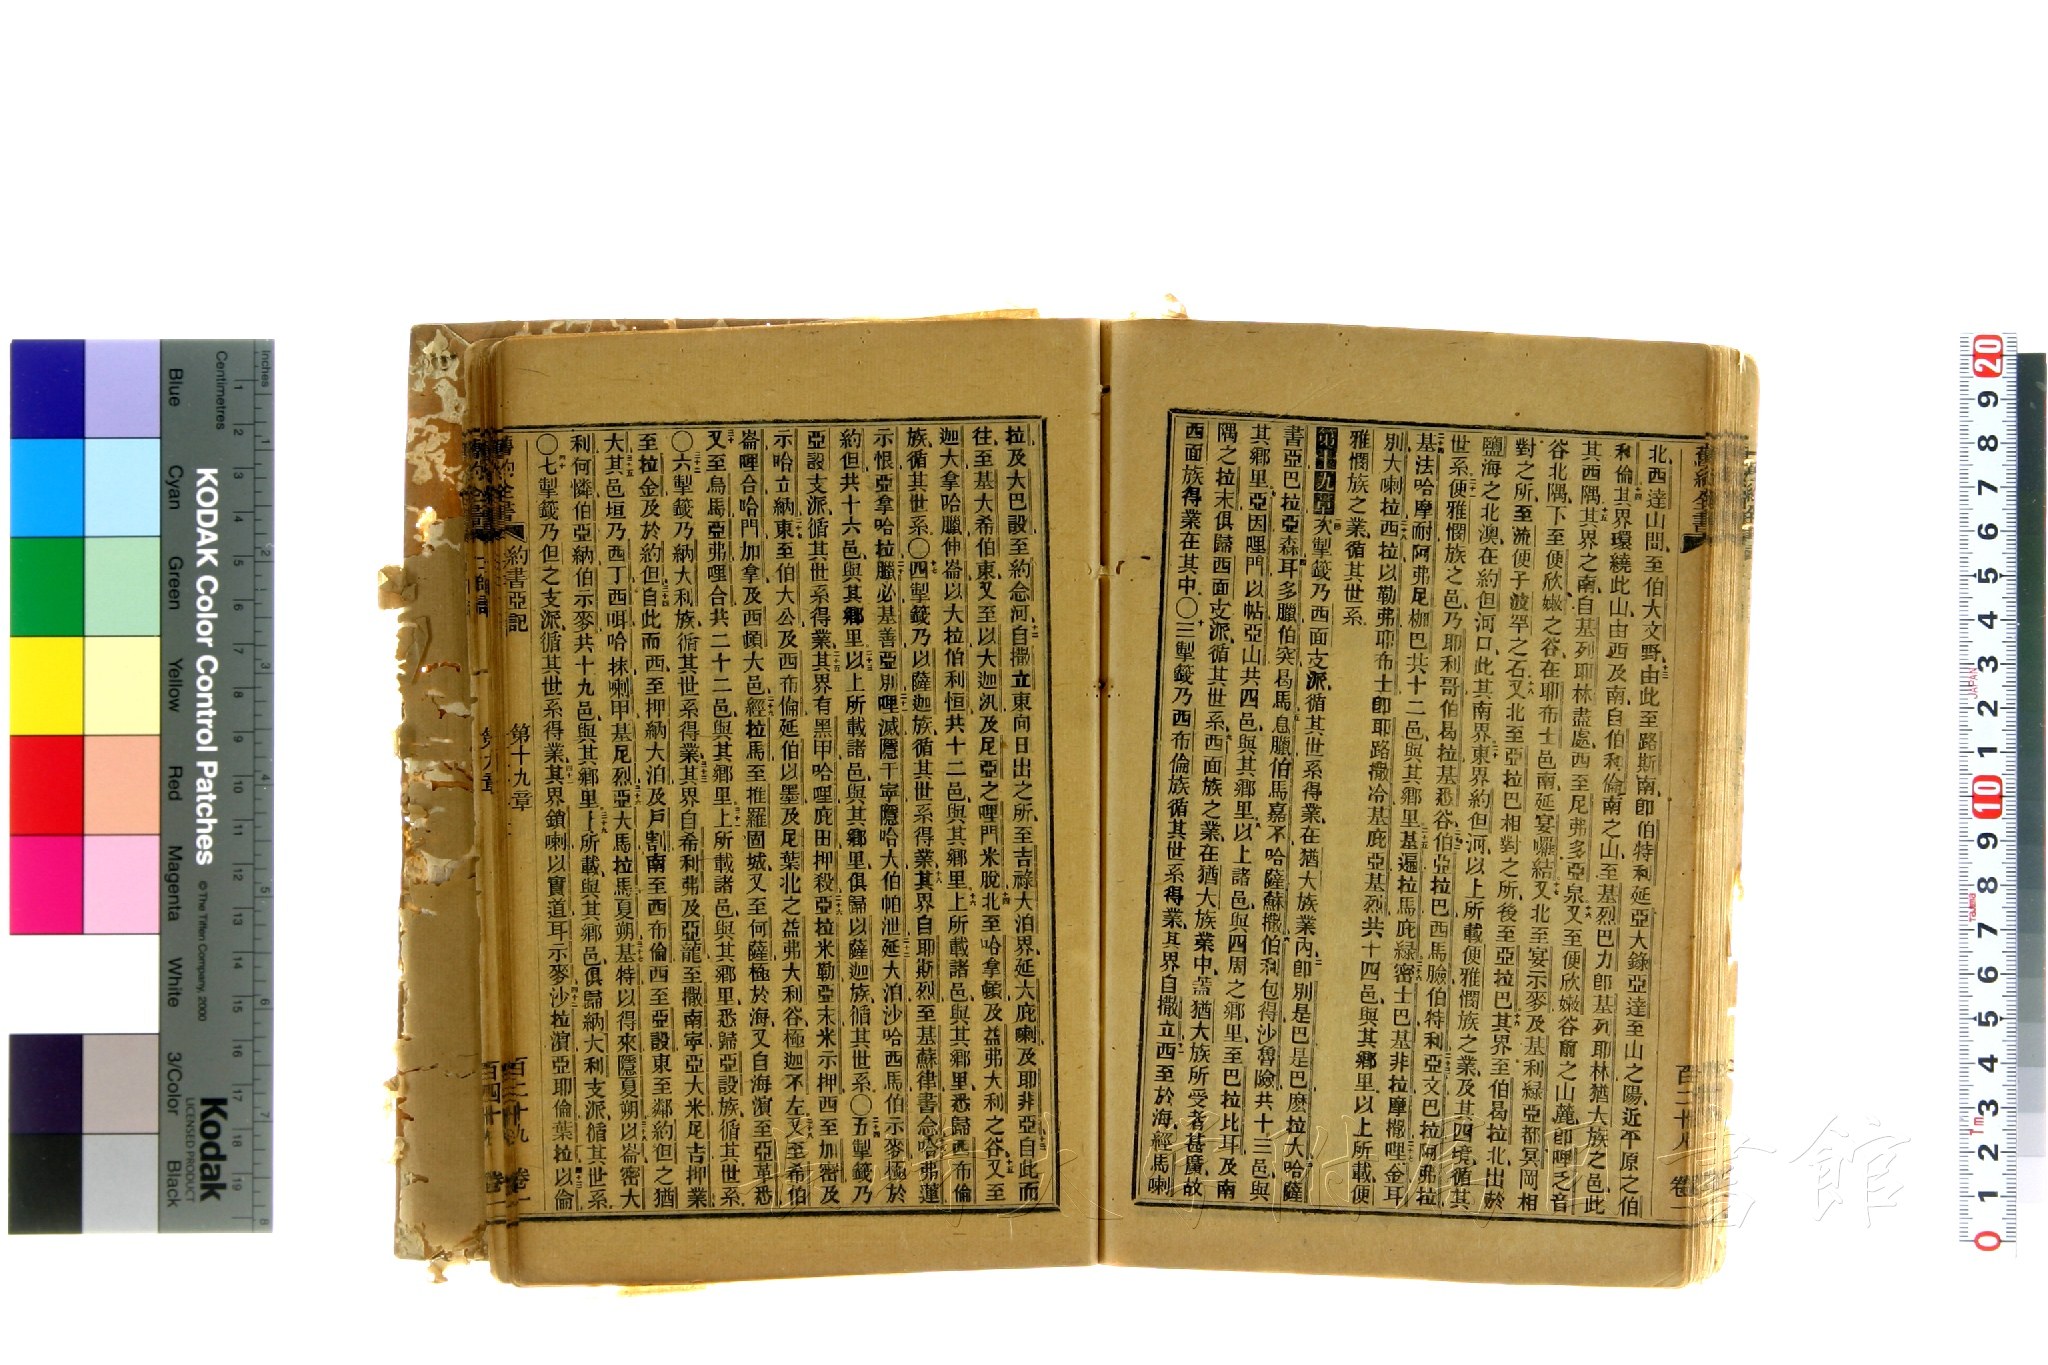 舊約全書
百二十八 卷一
北西達山間至伯大文野由此至路斯南卽伯特利延亞大錄亞達至山之陽近平原之伯
和倫其界環繞此山由西及南自伯和倫南之山至基烈巴力卽基列耶林猶大族之邑此
其西隅其界之南自基列耶林盡處西至尼弗多亞泉又至便欣嫩谷前之山麓卽哩乏音
谷北隅下至便欣嫩之谷在耶布士邑南延宴囉結又北至宴示麥及基利綠亞都冥岡相
對之所至流便子波罕之石又北至亞拉巴相對之所後至亞拉巴其界至伯曷拉北出於
鹽海之北澳在約但河口此其南界東界約但河以上所載便雅憫族之業及其四境循其
世系便雅憫族之邑乃耶利哥伯曷拉基悉谷伯亞拉巴西馬臉伯特利亞文巴拉阿弗拉
基法哈摩耐阿弗尼枷巴共十二邑與其鄉里基遍拉馬庇綠密士巴基非拉摩撒哩金耳
別大喇拉西拉以勒弗耶布士卽耶路撒冷基庇亞基烈共十四邑與其鄉里以上所載便
雅憫族之業循其世系
第十九章 次掣籤乃西面支派循其世系得業在猶大族業內卽別是巴是巴麽拉大哈薩
書亞巴拉亞森耳多臘伯突曷馬息臘伯馬嘉不哈薩蘇撒伯利包得沙魯險共十三邑與
其鄉里亞因哩門以帖亞山共四邑與其鄉里以上諸邑與四周之鄉里至巴拉比耳及南
隅之拉末俱歸西面支派循其世系西面族之業在猶大族業中蓋猶大族所受者甚廣故
西面族得業在其中〇三掣籤乃西布倫族循其世系得業其界自撒立西至於海經馬喇
拉及大巴設至約念河自撒立東向日出之所至吉祿大泊界延大庇喇及耶非亞自此而
往至基大希伯東又至以大迦汎及尼亞之哩門米脫北至哈拿頓及益弗大利之谷又至
迦大拿哈臘伸崙以大拉伯利恒共十二邑與其鄉里上所載諸邑與其鄉里悉歸西布倫
族循其世系〇四掣籤乃以薩迦族循其世系得業其界自耶斯烈至基蘇律書念哈弗蓮
示恨亞拿哈拉臘必基善亞別哩滅隱干寧隱哈大伯帕泄延大泊沙哈西馬伯示麥極於
約但共十六邑與其鄉里以上所載諸邑與其鄉里俱歸以薩迦族循其世系〇五掣籤乃
亞設支派循其世系得業其界有黑甲哈哩庇田押殺亞拉米勒亞末米示押西至加密及
示哈立納東至伯大公及西布倫延伯以墨及尼葉北之益弗大利谷極迦不左又至希伯
崙哩合哈門加拿及西頓大邑經拉馬至推羅固城又至何薩極於海又自海濱至亞革悉
又至烏馬亞弗哩合共二十二邑與其鄉里上所載諸邑與其鄉里悉歸亞設族循其世系
〇六掣籤乃納大利族循其世系得業其界自希利弗及亞龍至撒南寧亞大米尼吉押業
至拉金及於約但自此而西至押納大泊及戶割南至西布倫西至亞設東至鄰約但之猶
大其邑垣乃西丁西咡哈抹喇甲基尼烈亞大馬拉馬夏朔基特以得來隱夏朔以崙密大
利何憐伯亞納伯示麥共十九邑與其鄉里上所載與其鄉邑俱歸納大利支派循其世系
〇七掣籤乃但之支派循其世系得業其界鎖喇以實道耳示麥沙拉濱亞耶倫葉拉以倫
舊約全書 約書亞記 第十九章 百二十九 卷一